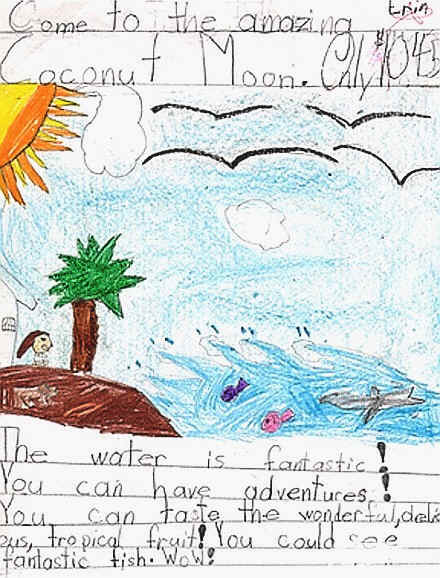 Come to the amazing
Coconut Moon. Only $1045
The water is fantastic!
You can have adventures!
You can taste the wonderful, delici
ous, tropical fruit! You could see
fantastic fish. Wow!